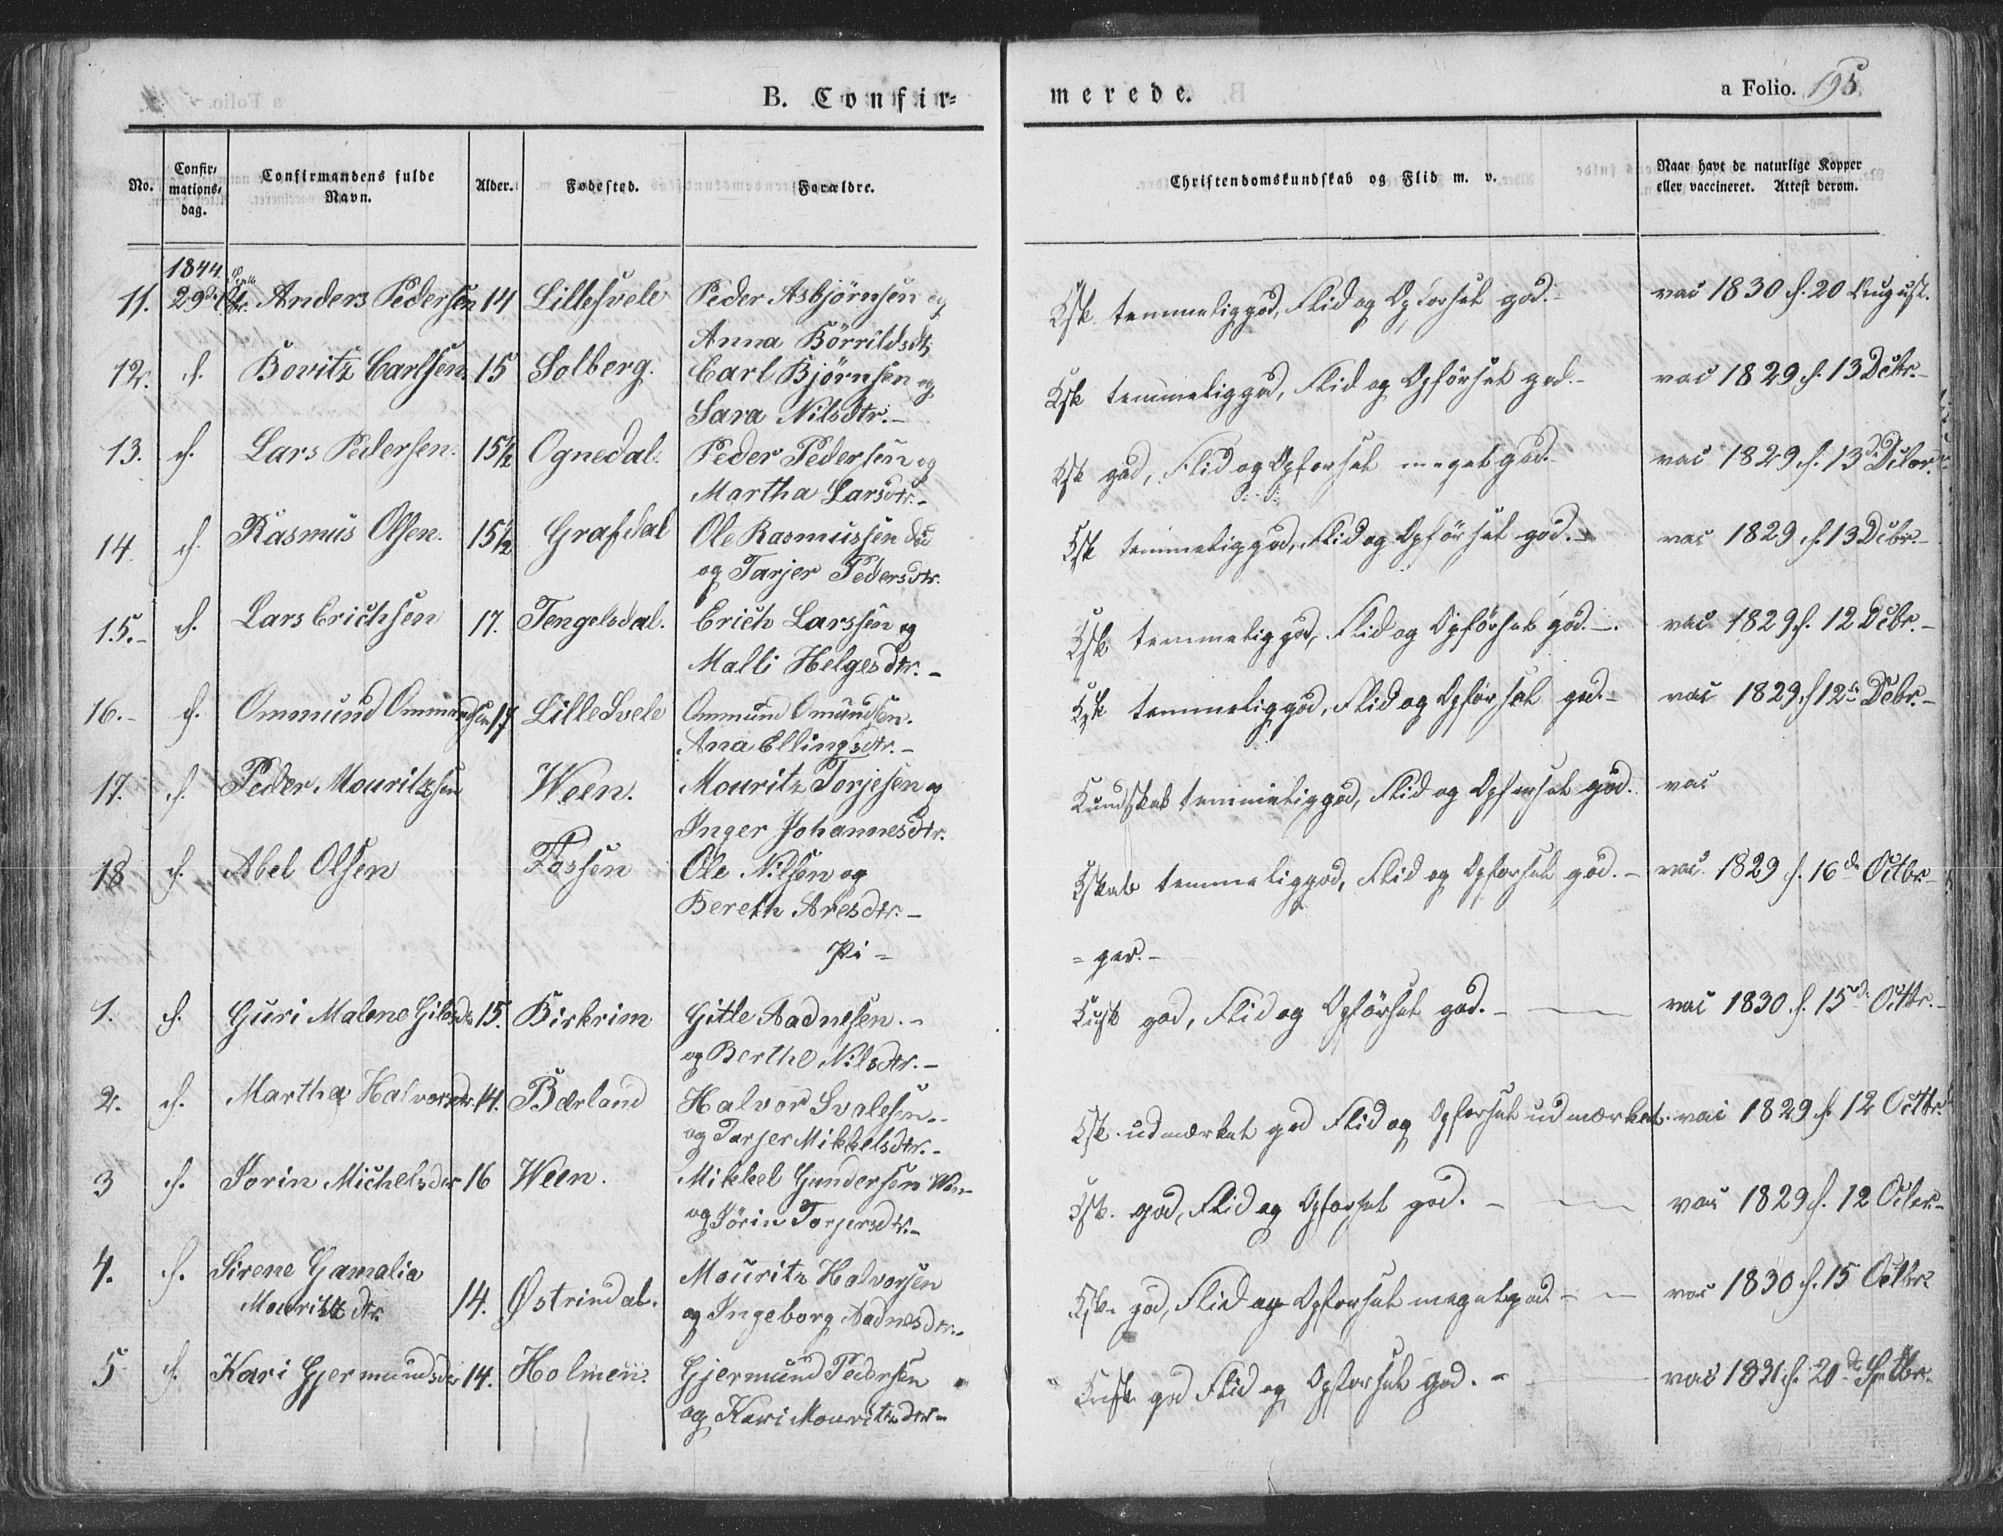 B. Confir=
merede.
a Folio. 195
No.
Confir-
mations-
dag.
Confirmandens fulde
Navn.
Alder.
Fødested.
Forældre.
Christendomskundskab og Flid m. v.
Naar havt de naturlige Kopper
eller vaccineret. Attest derom.
1844.
11. 29de Septbr. Anders Pedersen 14 Lillesvele Peder Asbjørnsen og Ksk. temmeliggod, Flid og Opførsel god.- vac 1830 d. 20 August.
Anna Börrildsdt
12. d. Bovitz Carlsen 15 Solberg. Carl Bjørnsen og Ksk temmeliggod, Flid og Opførsel god.- vac 1829 d. 13 Debr.-
Sara Nilsdtr.-
13. d. Lars Pedersen. 15½ Ognedal. Peder Pedersen og Ksk god, Flid og Opførsel meget god.- vac 1829 d. 13d Debr.
Martha Larsdtr.-
14. d. Rasmus Olsen. 15½ Grafdal Ole Rasmussen död Ksk temmeliggod, Flid og Opførsel god.- vac 1829 d. 13 Debr.-
og Tarjer Pedersdtr.
15.- d. Lars Erichsen 17. Tengelsdal. Erich Larssen og Ksk temmeliggod, Flid og Opførsel god.-. vac 1829 d. 12 Debr.-
Malli Helgesdtr.-
16.- d. Ommund Ommundsen 17 Lille Svele Ommund Omundsen. Ksk temmeliggod, Flid og Opførsel god.- vac 1829 d 12te Debr.-
Ana Ellingsdtr.-
17. d. Peder Mouritzsen Ween. Mouritz Torjesen og Kundskab temmeliggod, Flid og Opførsel god. vac
Inger Johannesdtr.
18 d. Abel Olsen Fossen Ole Nilsen og Kskab temmeliggod, Flid og Opførsel god.- vac. 1829 d. 16de Octbr-
Bereth Aresdtr.-
Pi-
=ger.-
1. d. Guri Malene Gitlesdtr 15. Birkrim Gitle Aadnesen.- Kusk god, Flid og Opførsel god.- vac 1830 d. 15de Octbr.-
og Berthe Nilsdtr.-
2. d. Martha Halvorsdtr. 14. Bærland Halvor Svalesen.- Ksk. udmærket god Flid og Opførsel udmærket. vac 1829 d. 12 Octbr.
og Tarjer Mikkelsdtr.-
3 d. Jorin Michelsdtr 16 Ween. Mikkel Gundersen Ween Ksk. god, Flid og Opførsel god.- vac 1829 d. 12 Octbr-
og Jörin Torjersdtr.-
4. d. Sirene Gamalia Mouritz Halvorsen
Mouritzdtr. 14. Østrindal. og Ingeborg Aadnesdtr.- Ksk. god, Flid og Opførsel meget god.- vac 1830 d. 15 Octbr.
5 d. Kari Gjermundsdtr 14. Holmen. Gjermund Pedersen Kusk god Flid og Opførsel god.- vac 1831 d. 20de Septbr.
og Kari Mouritzdtr-